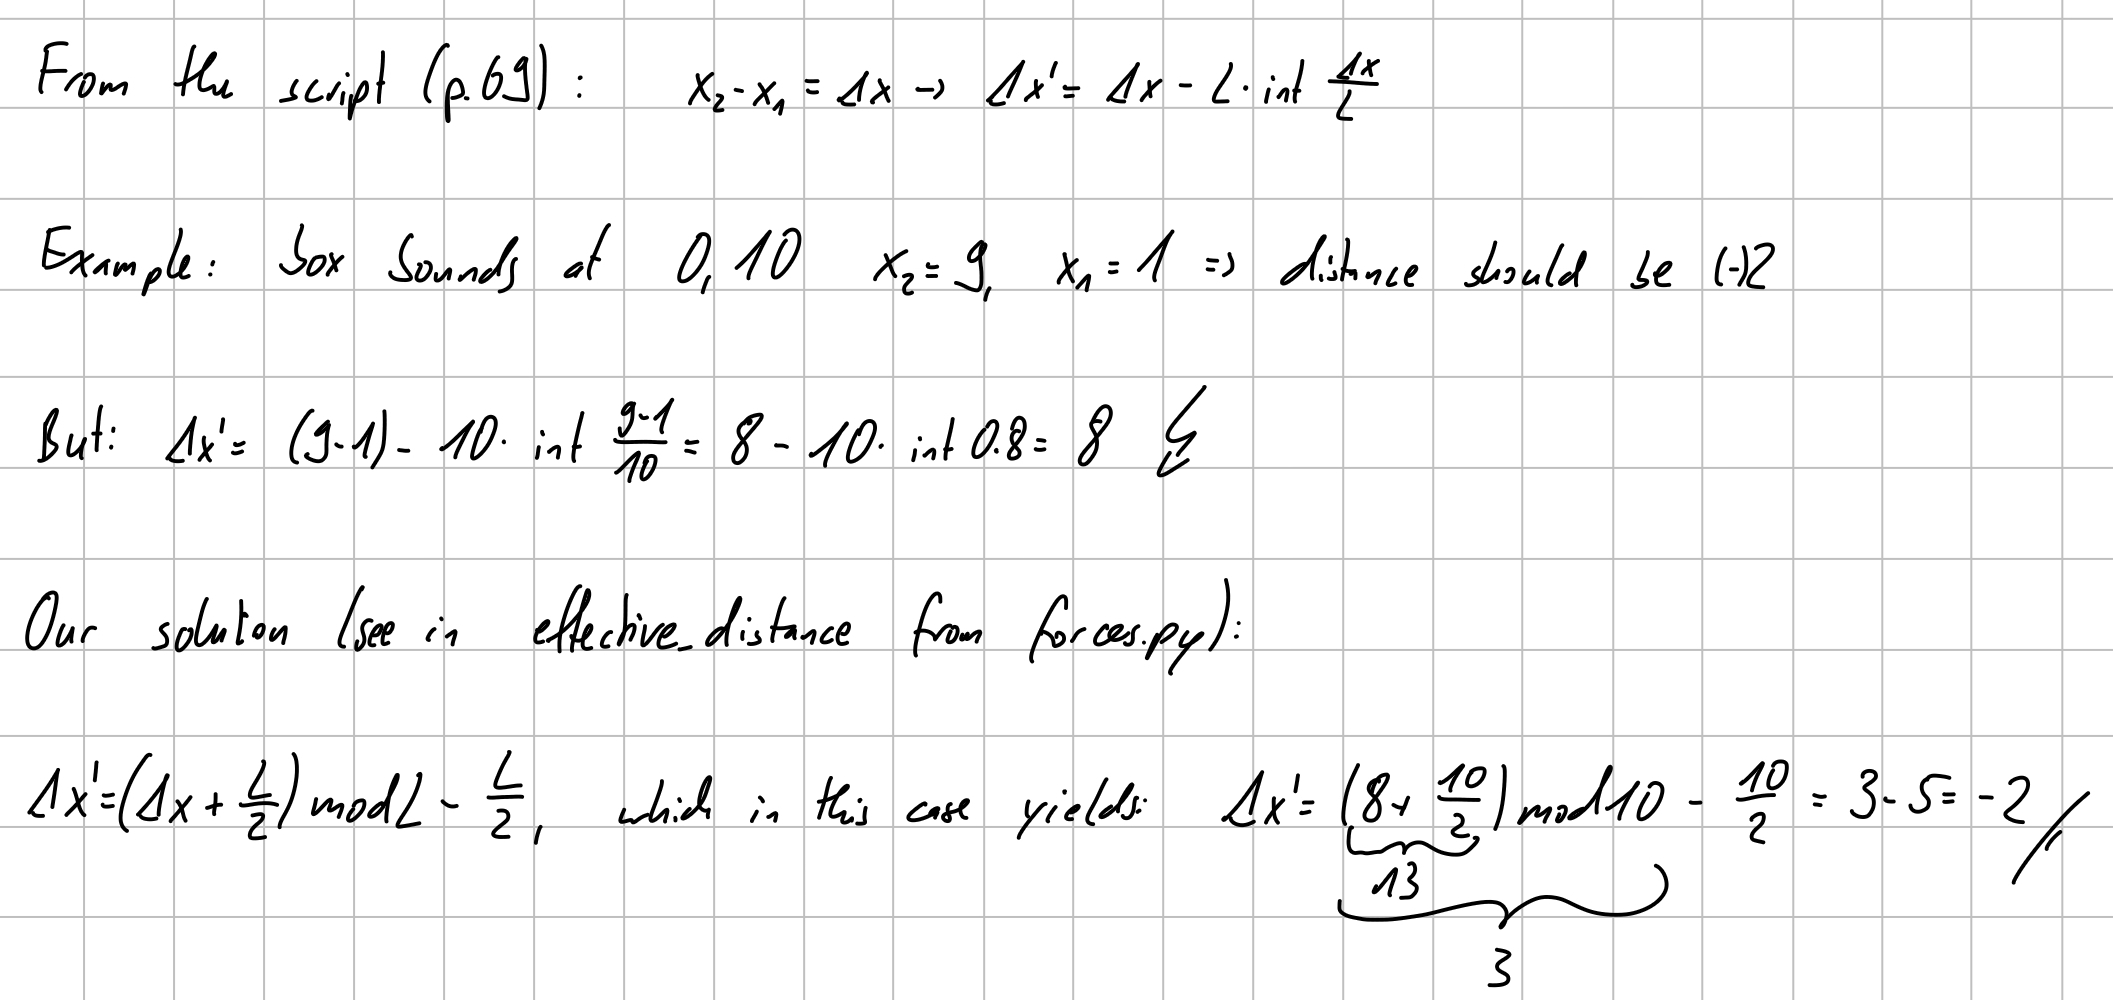 From the script (p.69): x₂-x₁ = Δx → Δx' = Δx - L · int Δx/L
Example: box bounds at 0, 10 x₂ = 9, x₁ = 1 => distance should be (-)2
But: Δx' = (9-1) - 10 · int (9-1)/10 = 8 - 10 · int 0.8 = 8 ↯
Our solution (see in effective_distance from forces.py):
Δx' = (Δx + L/2) mod L - L/2, which in this case yields: Δx' = (8 + 10/2) mod 10 - 10/2 = 3 - 5 = -2
13
3